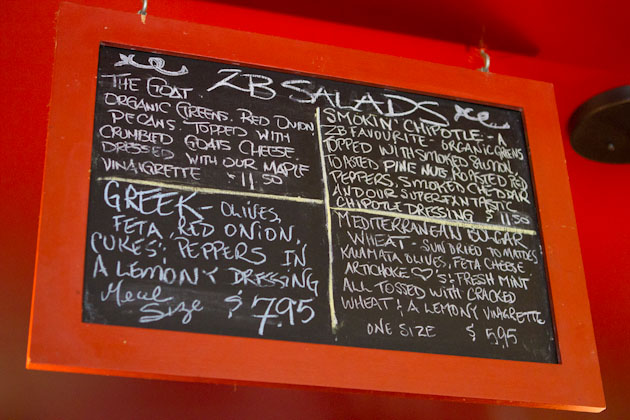 ZB SALADS
THE GOAT.
ORGANIC GREENS. RED ONION
PECANS. TOPPED WITH
CRUMBLED GOATS CHEESE.
DRESSED WITH OUR MAPLE
VINAIGRETTE - 11.50
SMOKIN' CHIPOTLE - A
ZB FAVOURITE - ORGANIC GREENS
TOPPED WITH SMOKED SALMON,
TOASTED PINE NUTS, ROASTED RED
PEPPERS, SMOKED CHEDDAR
AND OUR SUPERFANTASTIC
CHIPOTLE DRESSING $ 11.50
GREEK - OLIVES,
FETA, RED ONION,
CUKES, PEPPERS IN
A LEMONY DRESSING
Meal
Size $ 7.95
MEDITERRANEAN BULGAR
WHEAT - SUN DRIED TOMATOES
KALAMATA OLIVES, FETA CHEESE
ARTICHOKE ♡'S, FRESH MINT
ALL TOSSED WITH CRACKED
WHEAT & A LEMONY VINAIGRETTE
ONE SIZE $ 5.95